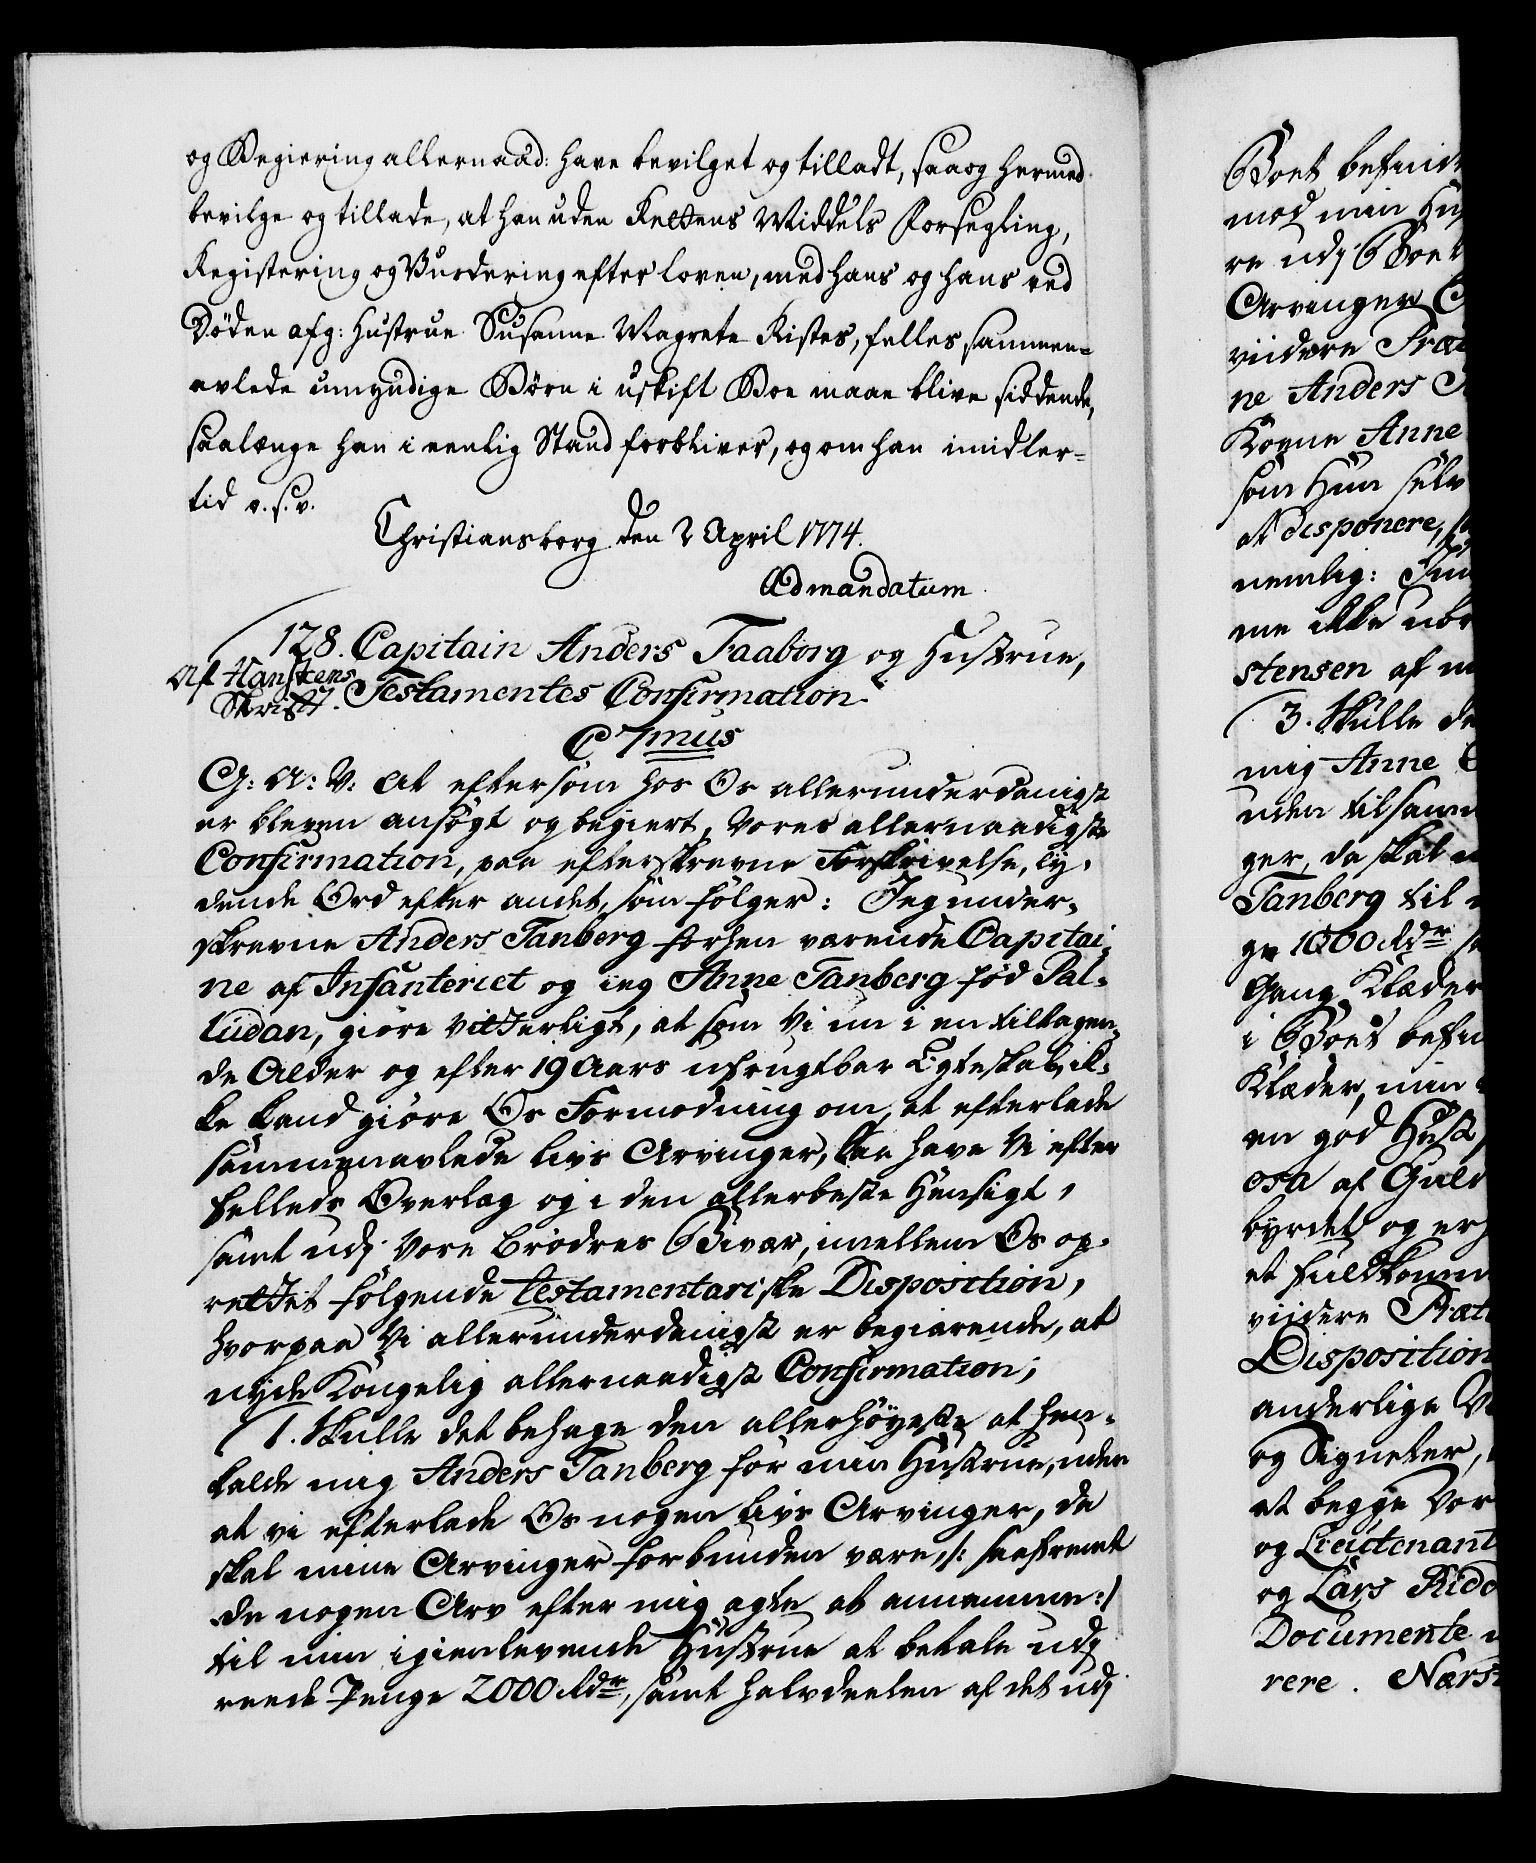 og Begiering allernaad: have bevilget og tilladt, saa og hermed
bevilge og tillade, at han uden Rettens Middels Forsegling,
Registering og Vurdering efter loven, med hans og hans ved
Døden afg: Hustrue Susanne Magrete Kistes, felles sammen-
avlede umyndige Børn i uskift Boe maae blive siddende,
saalænge han i eenlig Stand forbliver, og om han imidler-
tid o. s. v.
Christiansborg den 2 April 1774.
Ad mandatum
128. Capitain Anders Faaborg og Hustrue,
Af Hanstens
Skrift. Testamentes Confirmation.
C 7mus
G: A: V: At eftersom hos Os allerunderdanigst
er bleven ansøgt og begiert, Vores allernaadigste
Confirmation, paa efterskrevne Forskrivelse, ly-
dende Ord efter andet, som følger: Jeg under-
skrevne Anders Tanberg forhen værende Capitai-
ne af Infanteriet og ieg Anne Tanberg fød Pal-
ludan, giøre vitterligt, at som Vi nu i en tiltagen-
de Alder og efter 19 Aars ufrugtbar Egteskab, ik-
ke kand giøre Os Formodning om, at efterlade
sammenavlede livs Arvinger, saa have Vi efter
felleds Overlæg og i den allerbeste Hensigt,
samt udj Vore Brødres Bivær, imellem Os op-
rettet følgende testamentariske Disposition,
hvorpaa Vi allerunderdanigst er begiærende, at
nyde Kongelig allernaadigst Confirmation;
1. Skulle det behage den allerhøyeste at hen-
kalde mig Anders Tanberg før min Hustrue, uden
at vi efterlade Os nogen livs Arvinger, da
skal mine Arvinger forbunden være, /: saafremt
de nogen Arv efter mig agte at annamme :/
til min igienlevende Hustrue at betale udj
reede Penge 2000 Rdr, samt halvdeelen af det udj
Boet befind
mod min Hu
re udj Boet
Arvinger
viidere Præt
ne Anders
Kone Anne
som Hun selv
at disponere,
nemlig:
me ikke
stensen af m
3. Skulle de
mig Anne
uden tilsam
ger, da skal
Tanberg til
ge 1000 Rdr
Gang Klæder
i Boet befin
Klæder, min
en god Hest,
osa af Guld
byrdet og er
et fuldkomm
viidere Præt
Disposition
anderlige V
og Signeter,
at begge Vor
og Lieutenant
og Lars Rid
Documente
rere. Nærs